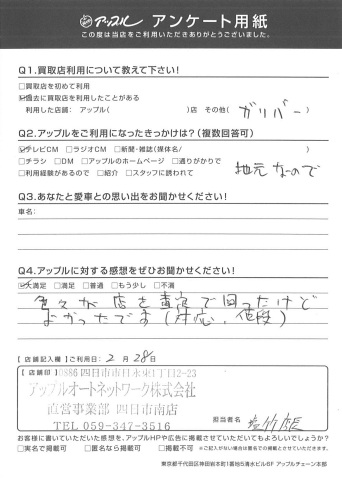 アップル アンケート用紙
この度は当店をご利用いただきありがとうございました。
Q1.買取店利用について教えて下さい!
□買取店を初めて利用
☑過去に買取店を利用したことがある
利用した店舗: アップル( )店 その他( ガリバー )
Q2.アップルをご利用になったきっかけは?(複数回答可)
☑テレビCM □ラジオCM □新聞・雑誌(媒体名/ )
□チラシ □DM □アップルのホームページ □通りがかりで
□利用経験があるので □紹介 □スタッフに誘われて
地元なので
Q3.あなたと愛車との思い出をお聞かせください!
車名:
Q4.アップルに対する感想をぜひお聞かせください!
☑大満足 □満足 □普通 □もう少し □不満
色々が店を 回ったけど
よかったです(対応、値段)
【店舗記入欄】ご利用日: 2月 28日
【店舗印】 0886 四日市市日永東1丁目2-23
アップルオートネットワーク株式会社
直営事業部 四日市南店
TEL 059-347-3516
担当者名
お客様に書いていただいた感想を、アップルHPや広告に掲載させていただいてもよろしいでしょうか?
□実名で掲載可 □匿名なら掲載可 □掲載不可 ※ご記入がない場合は匿名での掲載とさせていただきます。
東京都千代田区神田岩本町1番地5清水ビル6F アップルチェーン本部